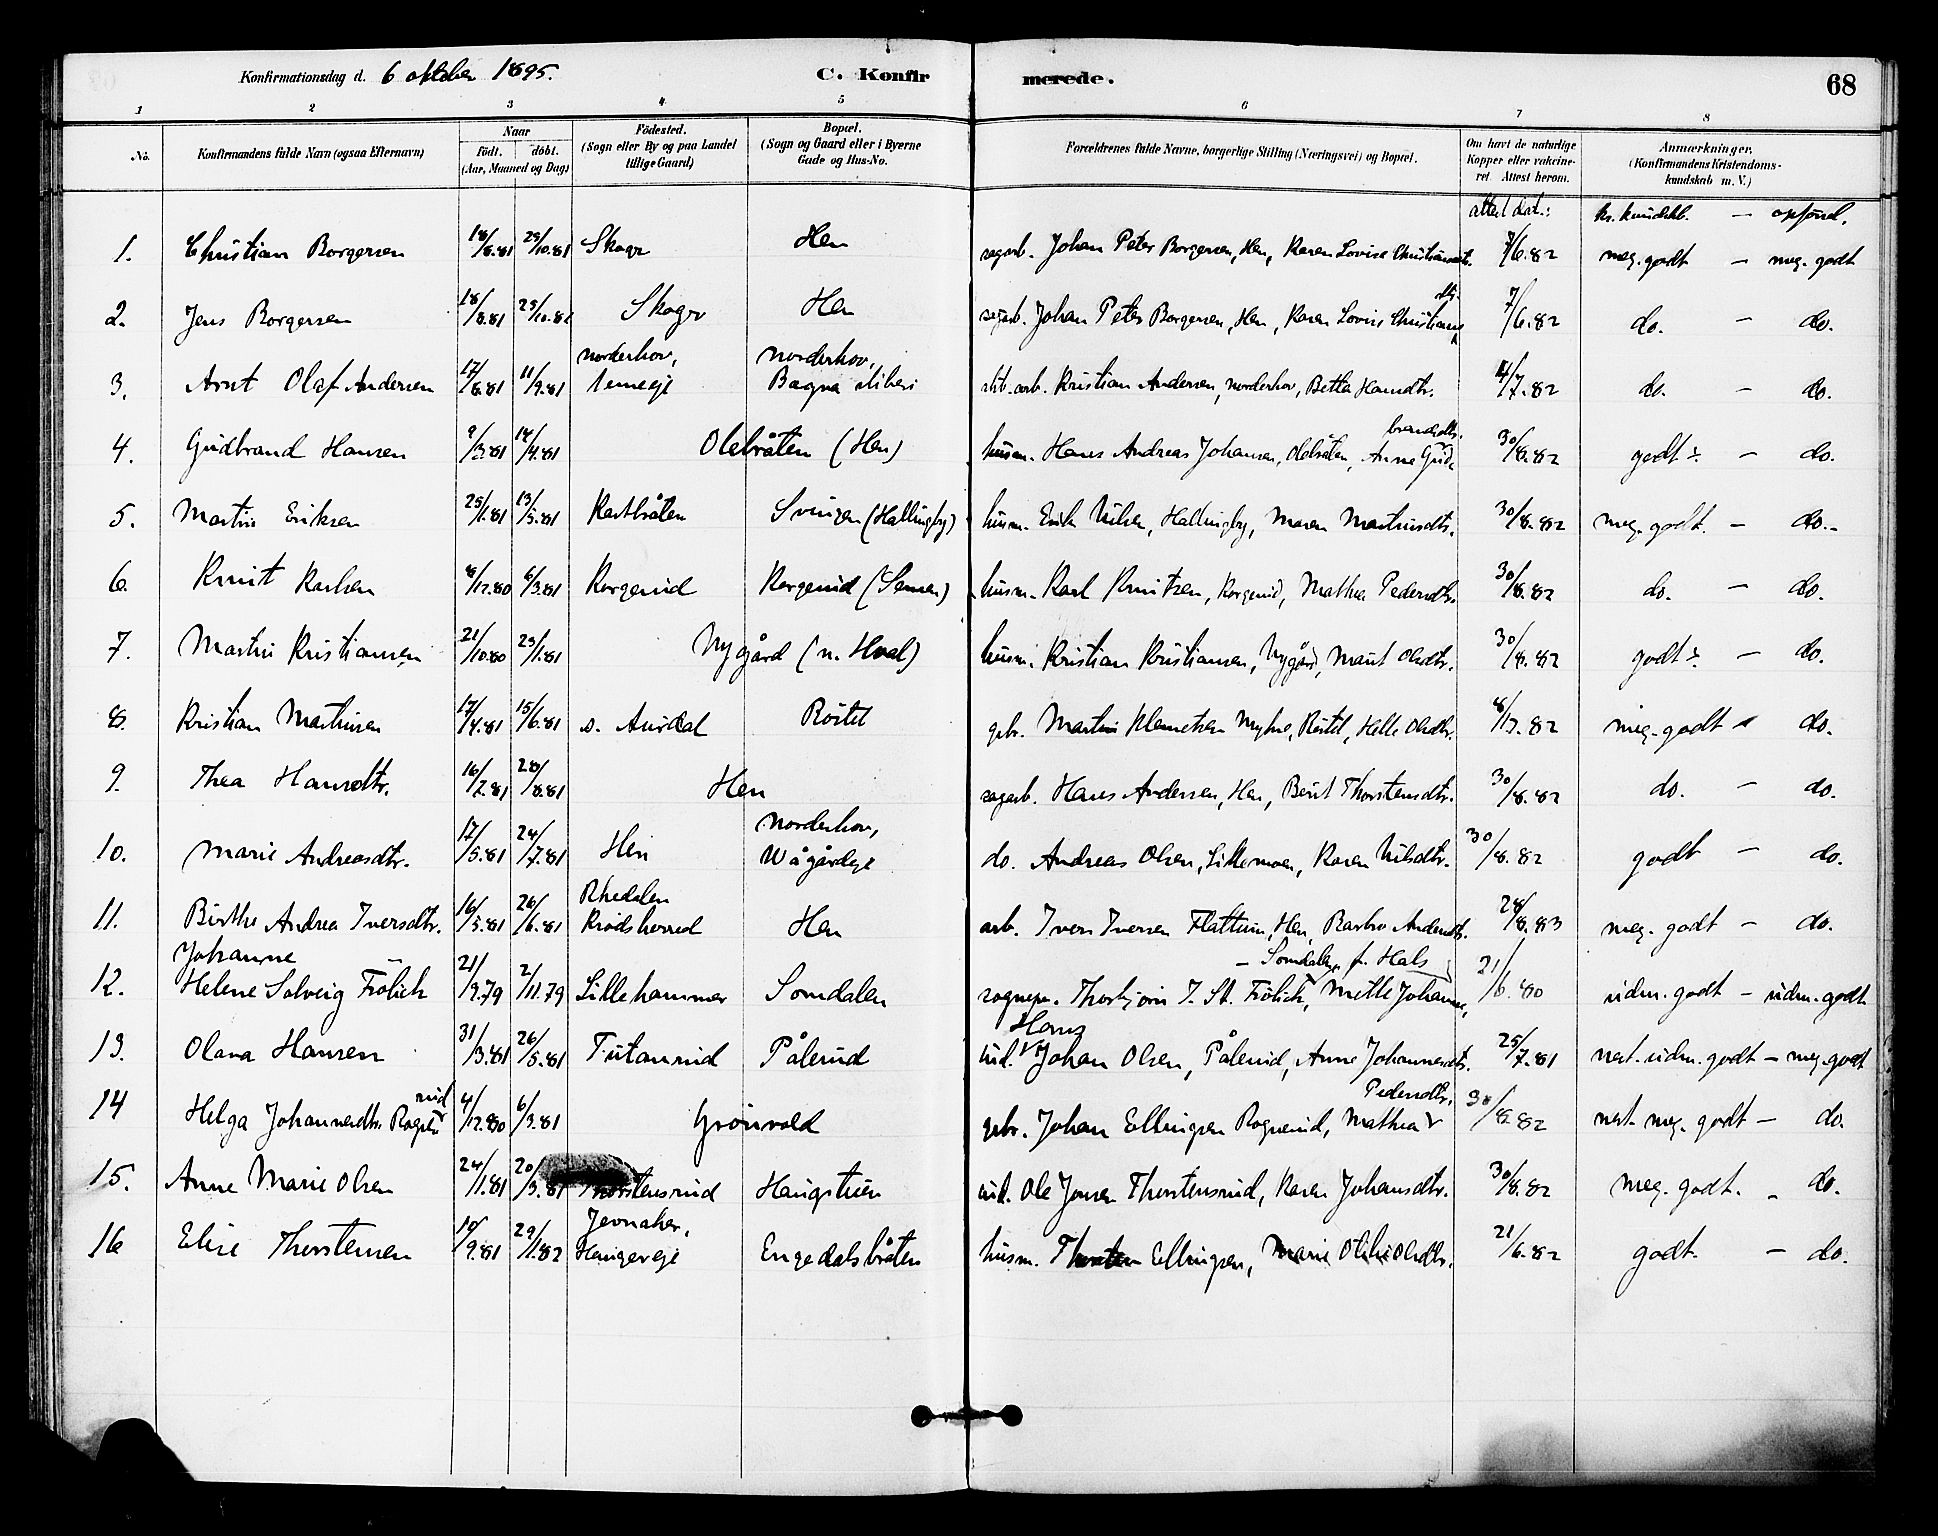 Konfirmationsdag d. 6 oktober 1895. C. Konfirmerede. 68
1 2 3 4 5 6 7 8
No. Konfirmandens fulde Navn (ogsaa Efternavn) Naar födt. döbt. (Aar, Maaned og Dag) Födested. (Sogn eller By og paa Landet tillige Gaard) Bopæl. (Sogn og Gaard eller i Byerne Gade og Hus-No. Forældrenes fulde Navne, borgerlige Stilling (Næringsvei) og Bopæl. Om havt de naturlige Kopper eller vakcineret. Attest herom. Anmærkninger. (Konfirmandens Kristendomskundskab m. V.)
attest dat.: kr. kundskb. — opförd.
1. Christian Borgersen 18/8.81 25/10.81 Skoger Hen sagarb. Johan Peter Borgersen, Hen, Karen Lovise Christiansdtr. 7/6.82 meg. godt — meg. godt
2. Jens Borgersen 18/8.81 25/10.81 Skoger Hen sagarb. Johan Peter Borgersen, Hen, Karen Lovise Christiansdtr. 7/6.82 do. — do.
3. Arnt Olaf Andersen 17/6.81 11/9.81 norderhov, norderhov, Bagna sliberi slib.arb. Kristian Andersen, norderhov, Betta Hansdtr. 4/7.82 do. — do.
4. Gudbrand Hansen 9/3.81 14/4.81 Olebråten (Hen) husm. Hans Andreas Johansen, Olebråten, Anne Gudbrandsdtr. 30/8.82 godt ÷ — do.
5. Martin Eriksen 25/1.81 13/5.81 Kastbråten Svingen (Hallingby) husm. Erik Nilsen, Hallingby, Maren Martinsdtr. 30/8.82 meg. godt. — do.
6. Knut Karlsen 8/12.80 6/3.81 Korgerud Korgerud (Semen) husm. Karl Knutsen, Korgerud, Mathea Pedersdtr. 30/8.82 do. — do.
7. Martin Kristiansen 21/10.80 23/1.81 Nygård (n. Hval) husm. Kristian Kristiansen, Nygård, Marit Olsdtr. 30/8.82 godt ÷ — do.
8. Kristian Martinsen 17/4.81 15/6.81 s. Aurdal Röitel gbr. Martin Klemetsen Myhre, Röitel, Helle Olsdtr. 8/13.82 meg. godt — do.
9. Thea Hansdtr. 16/2.81 28/8.81 Hen sagarb. Hans Andersen, Hen, Berit Thorstensdtr. 30/8.82 do. — do.
10. Marie Andreasdtr. 17/5.81 24/7.81 Hen norderhov, Wågårdeje do. Andreas Olsen, Littermoen, Karen Nilsdtr. 30/8.82 godt — do.
11. Birthe Andrea Iversdtr. 16/5.81 26/6.81 Rhedalen Krödsherred Hen arb. Iver Iversen Flattum, Hen, Barbro Andersdtr. 28/8.83 meg. godt — do.
12. Johanne Helene Solveig Frölich 21/9.79 2/11.79 Lillehammer Somdalen sognepr. Thorbjörn J. St. Frölich, Mette Johanne, — Somdalen, f. Hals 21/6.80 udm. godt — udm. godt
13. Olava Hansen 31/3.81 26/5.81 Tutanrud Pålerud ind. Hans Johan Olsen, Pålerud, Anne Johannesdtr. 25/7.81 nest. udm. godt — meg. godt
14 Helga Johannesdtr. Rognerud 4/12.80 6/3.81 Grönvold gbr. Johan Ellingsen Rognerud, Mathea Pedersdtr. 30/8.82 nest. meg. godt — do.
15. Anne Marie Olsen 24/1.81 20/3.81 Thorstensrud Haugstuen ind. Ole Jonsen Thorstensrud, Karen Johansdtr. 30/8.82 meg. godt. — do.
16 Elise Thorstensen 10/9.81 29/1.82 Jevnaker, Haugereje Engedalsbråten husm. Thorsten Ellingsen, Marie Otilie Olsdtr. 21/6.82 godt. — do.